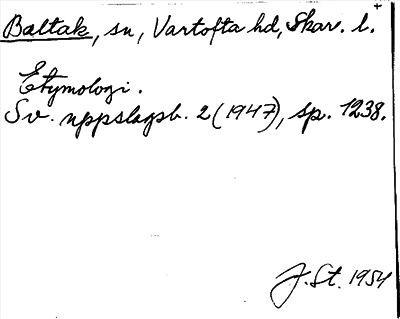 Baltak, sn, Vartofta hd, Skar. l.
Etymologi.
Sv. uppslagsb. 2 (1947), sp. 1238.
J. St. 1954